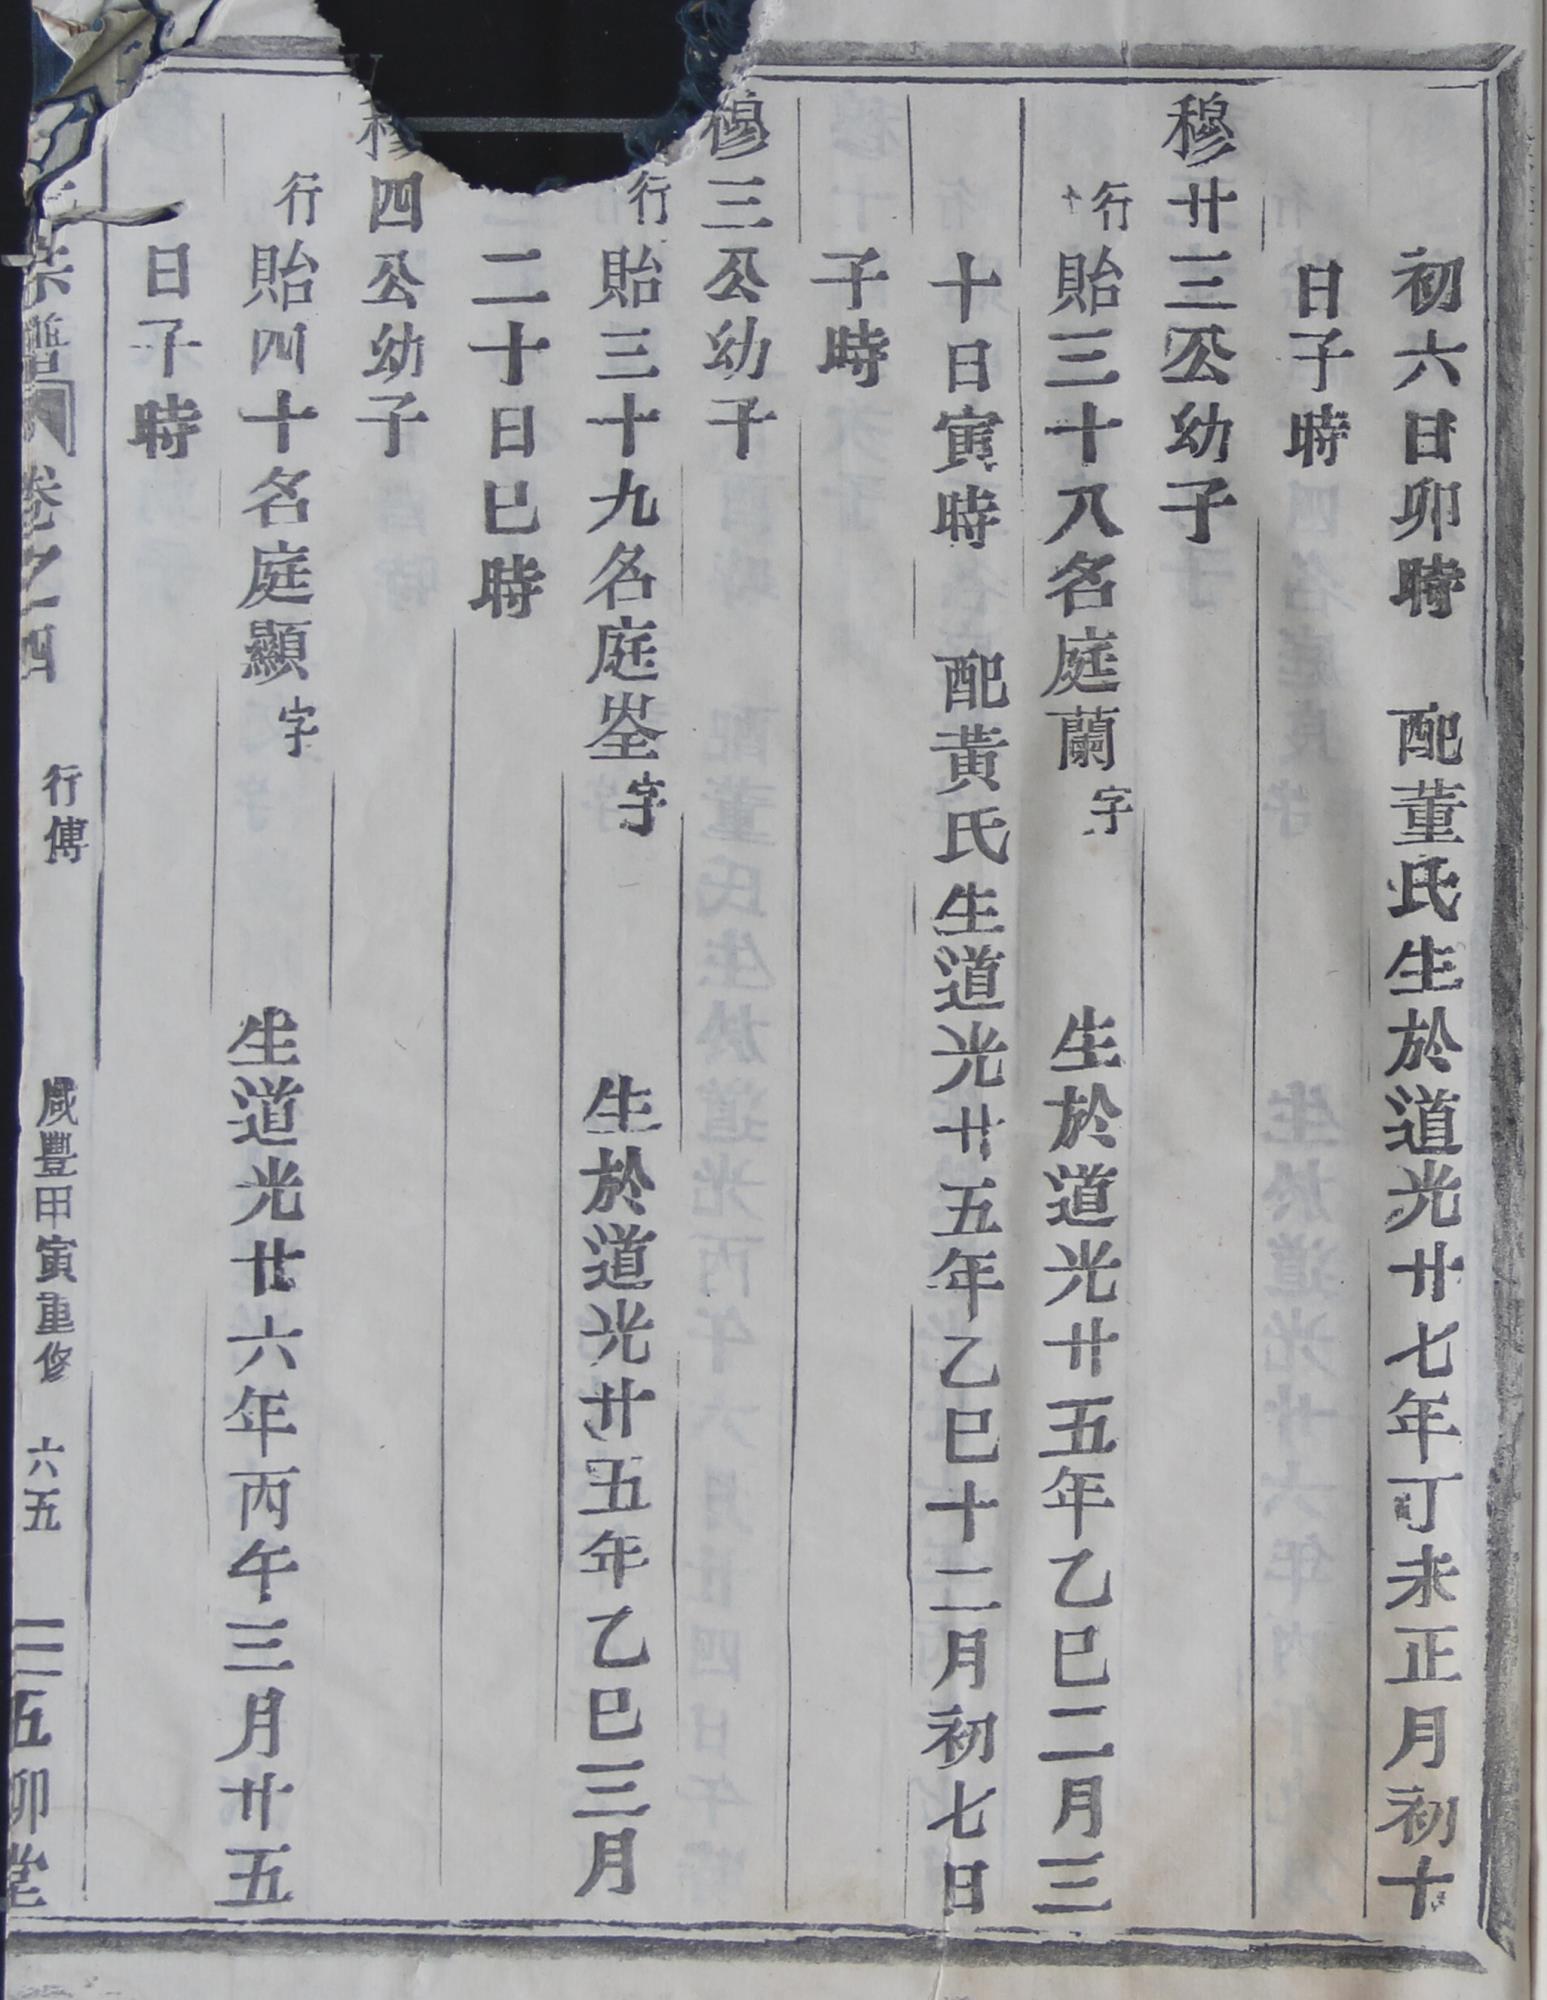 初六日卯時　配董氏生於道光廿七年丁未正月初十
日子時
穆廿三公幼子
行貽三十八名庭蘭字　生於道光廿五年乙巳二月三
十日寅時　配黃氏生道光廿五年乙巳十二月初七日
子時
穆三公幼子
行貽三十九名庭峑字　生於道光廿五年乙巳三月
二十日巳時
穆四公幼子
行貽四十名庭顯字　生道光廿六年丙午三月廿五
日子時
宗譜　卷之四　行傳　咸豐甲寅重修　六五　五柳堂